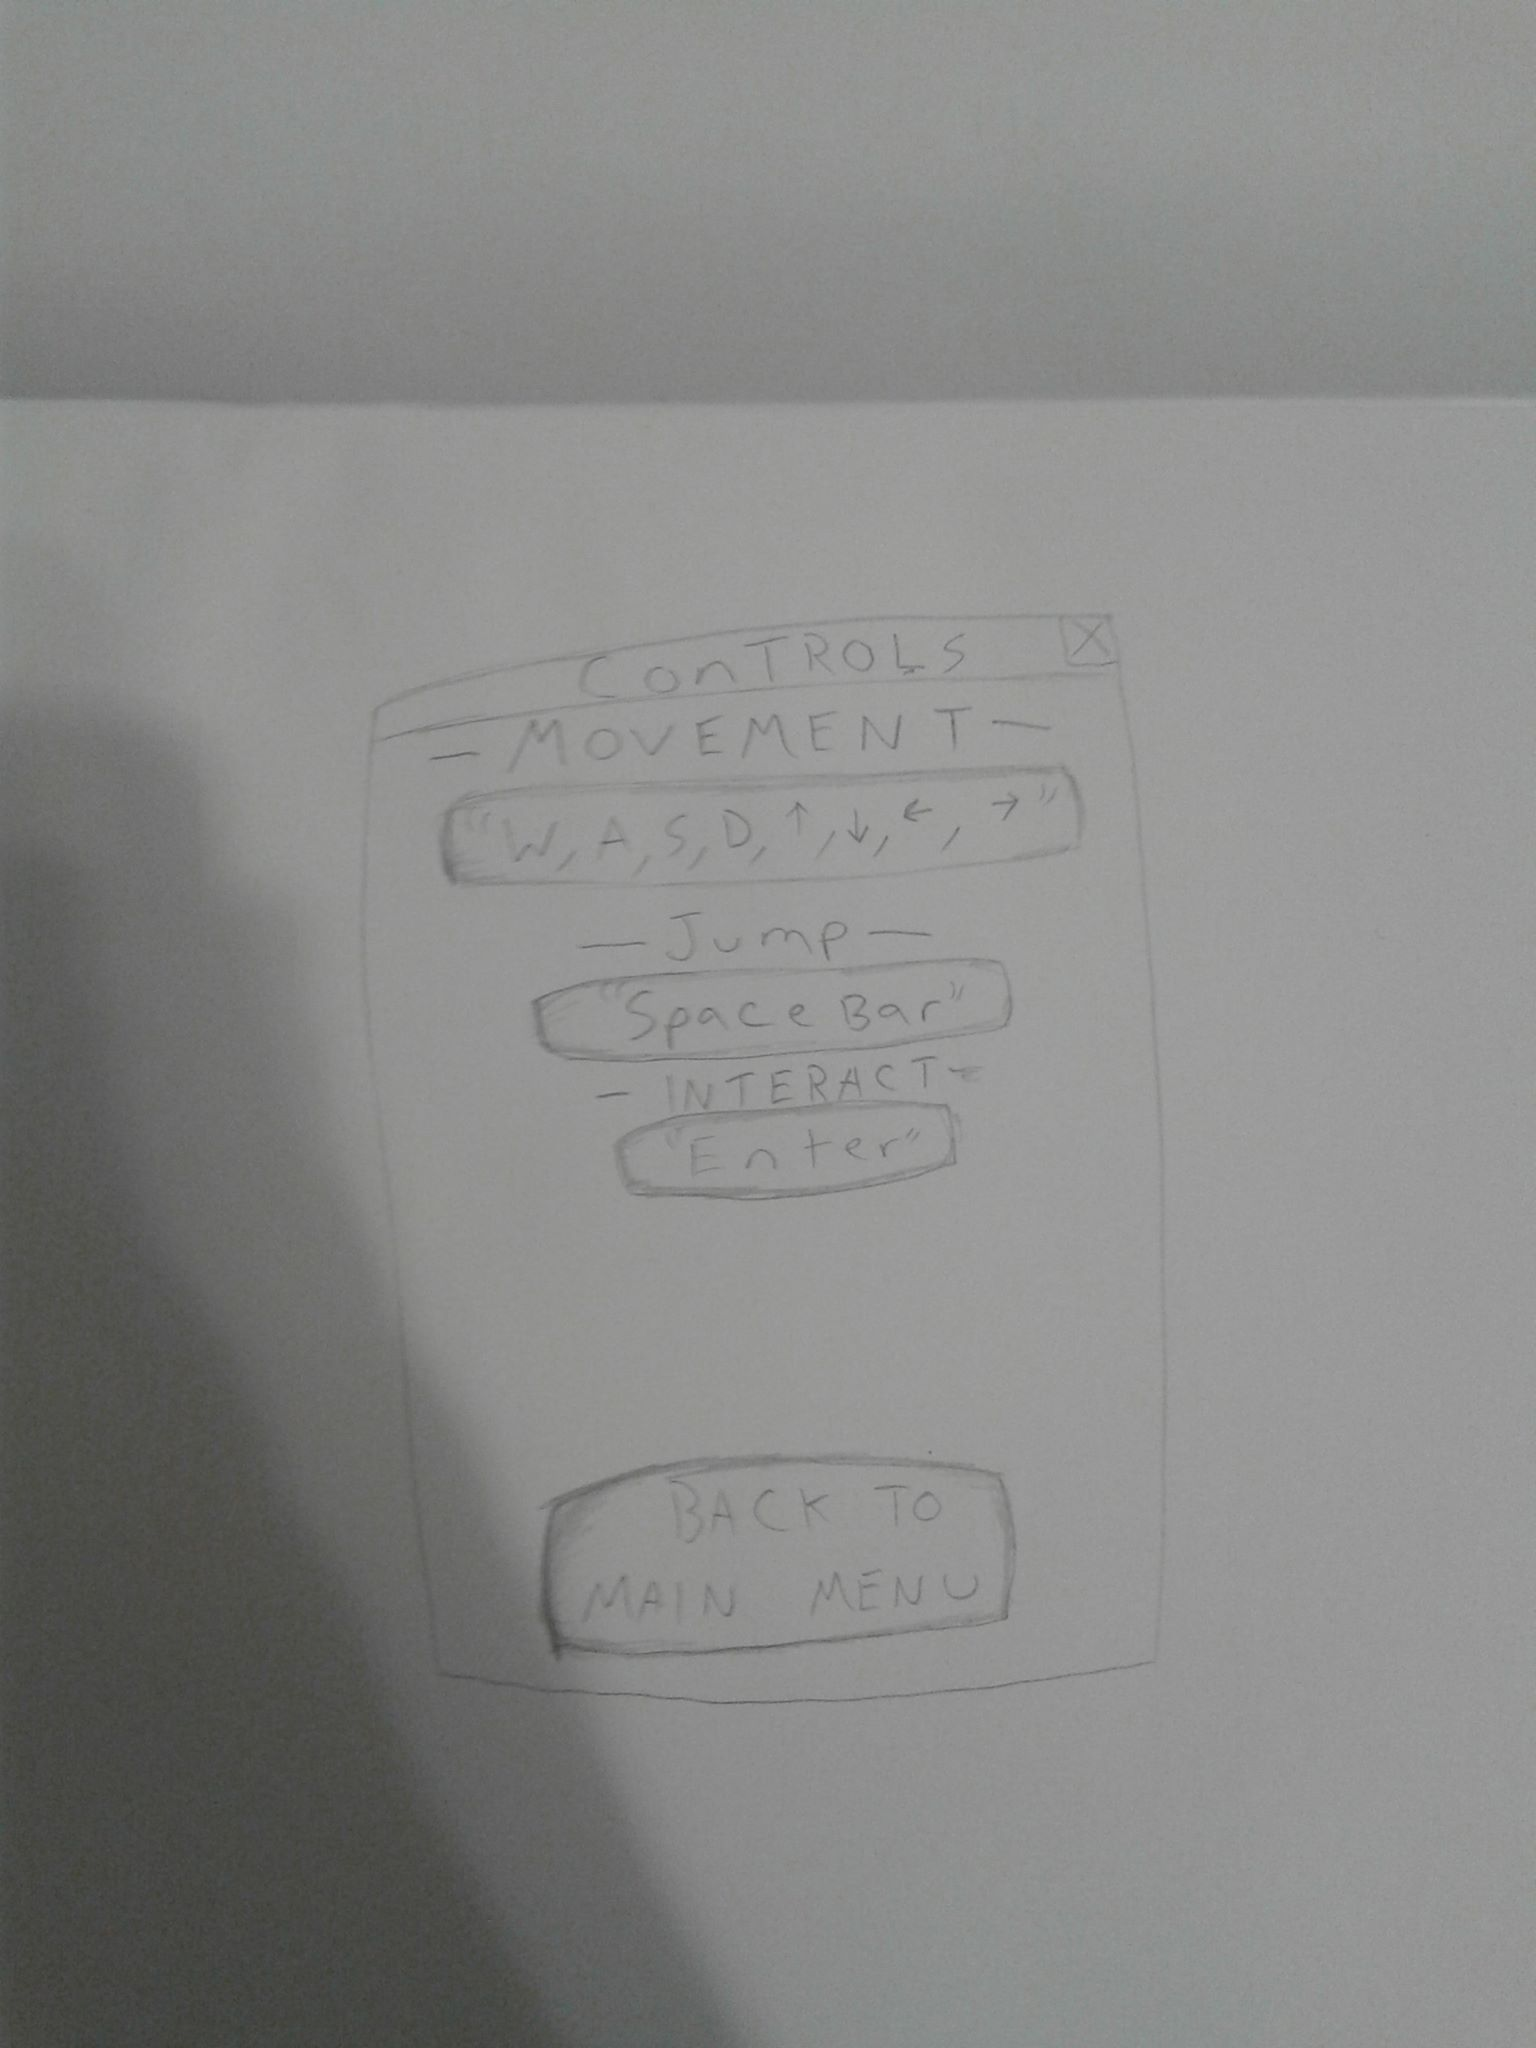 ConTROLS X
- MOVEMENT -
"W, A, S, D, ↑, ↓, ←, →"
- Jump -
"Space Bar"
- INTERACT -
"Enter"
BACK TO
MAIN MENU